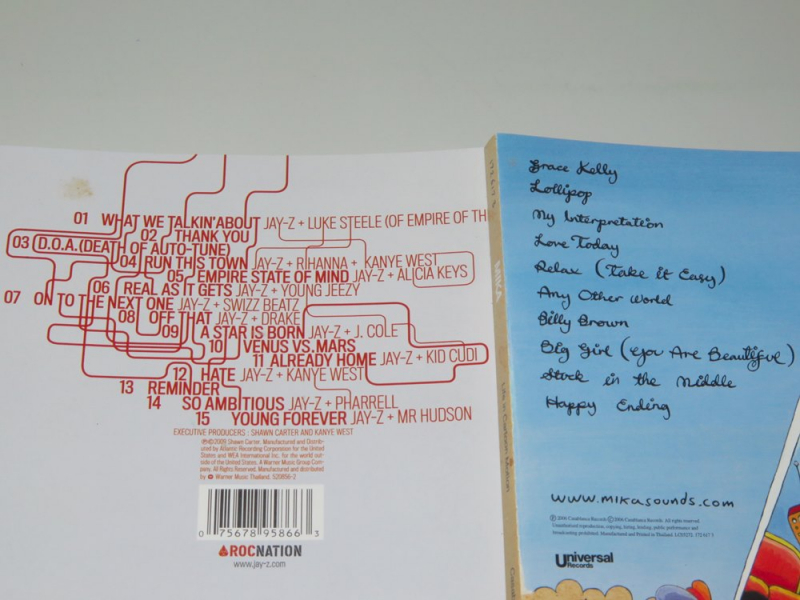 01 WHAT WE TALKIN' ABOUT JAY-Z + LUKE STEELE (OF EMPIRE OF TH
02 THANK YOU
03 D.O.A. (DEATH OF AUTO-TUNE)
04 RUN THIS TOWN JAY-Z + RIHANNA + KANYE WEST
05 EMPIRE STATE OF MIND JAY-Z + ALICIA KEYS
06 REAL AS IT GETS JAY-Z + YOUNG JEEZY
07 ON TO THE NEXT ONE JAY-Z + SWIZZ BEATZ
08 OFF THAT JAY-Z + DRAKE
09 A STAR IS BORN JAY-Z + J. COLE
10 VENUS VS. MARS
11 ALREADY HOME JAY-Z + KID CUDI
12 HATE JAY-Z + KANYE WEST
13 REMINDER
14 SO AMBITIOUS JAY-Z + PHARRELL
15 YOUNG FOREVER JAY-Z + MR HUDSON
EXECUTIVE PRODUCERS : SHAWN CARTER AND KANYE WEST
℗©2009 Shawn Carter. Manufactured and Distribu-
ted by Atlantic Recording Corporation for the United
States and WEA International Inc. for the world out-
side of the United States. A Warner Music Group Com-
pany. All Rights Reserved. Manufactured and distributed
by Warner Music Thailand. 520856-2
0 75678 95866 3
ROCNATION
www.jay-z.com
MIKA
Life in Cartoon Motion
Grace Kelly
Lollipop
My Interpretation
Love Today
Relax (Take it Easy)
Any Other World
Billy Brown
Big Girl (You Are Beautiful)
Stuck in the Middle
Happy Ending
www.mikasounds.com
Universal
Records